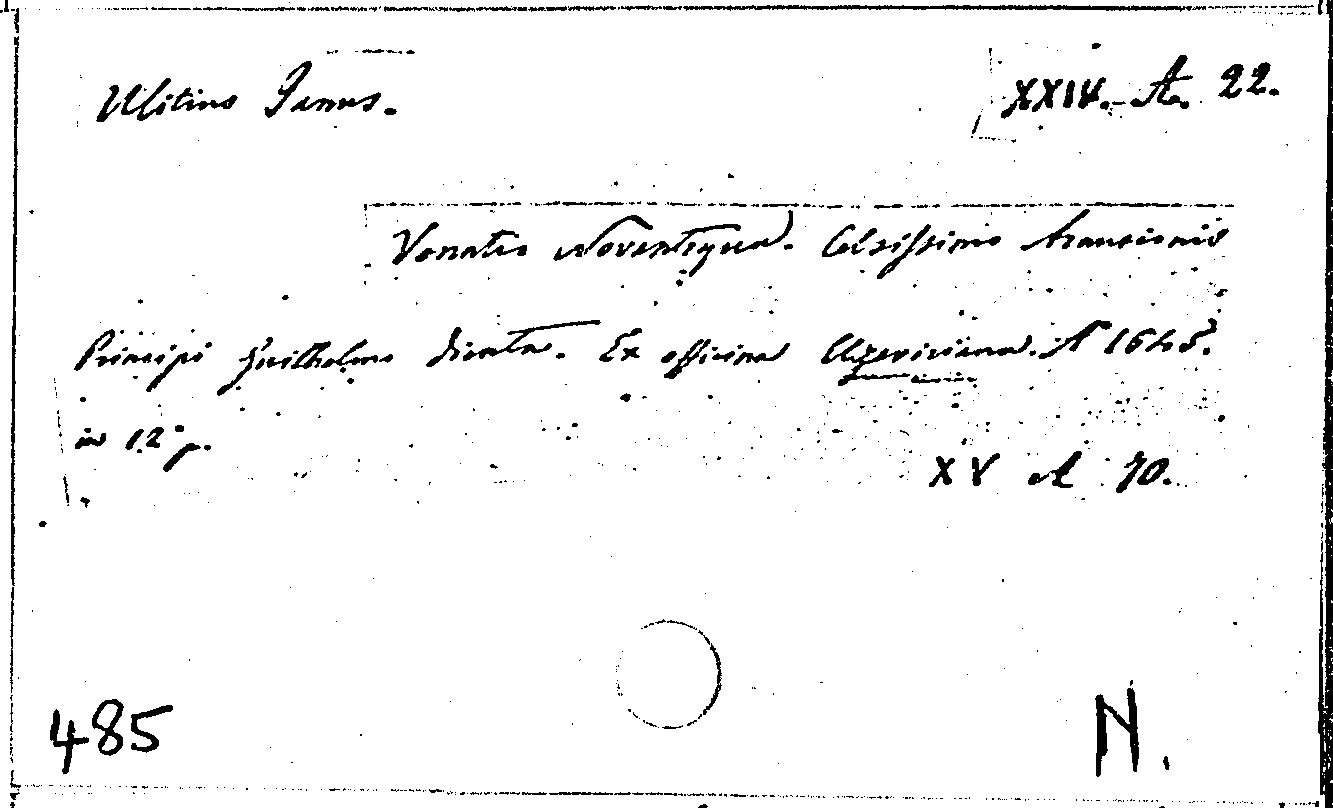 Ulitius Janus.
XXIV. A. 22.
Venatio Novantiqua. Celsissimo Arausionis
Principi Guilhelmo dicata. Ex officina Elzeviriana. A 1645.
in 12° p.
XV A 70.
485
N.